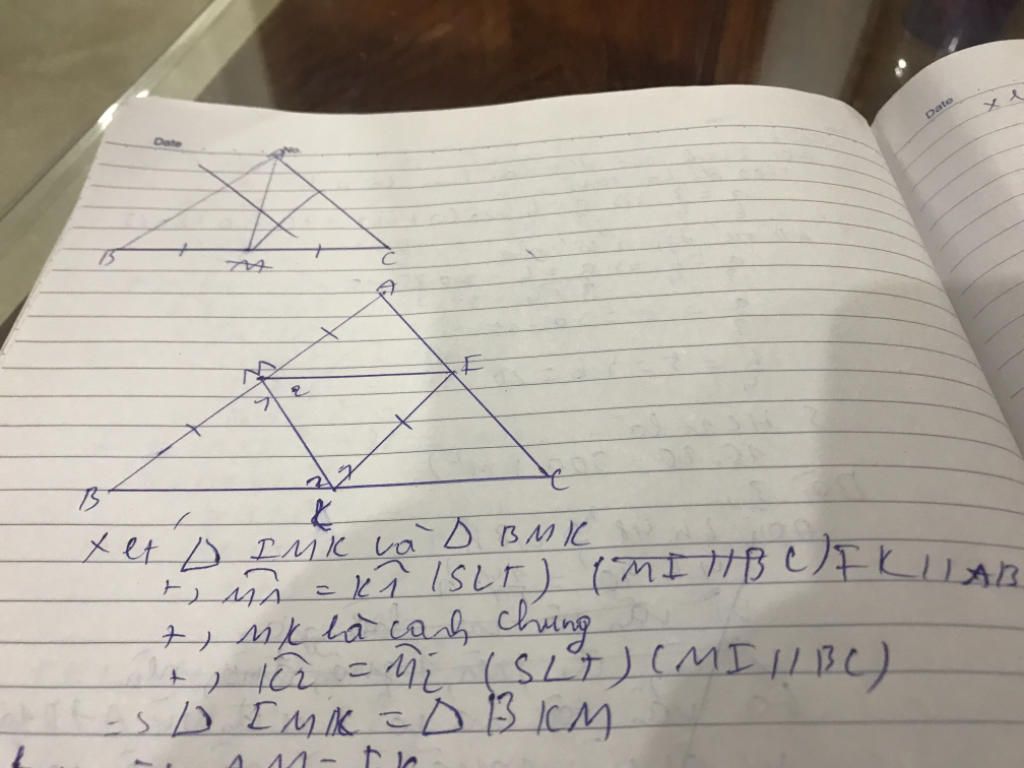 Date
Date
B
M
C
A
I
1 2
B
2 1
K
C
Xét Δ IMK và Δ BMK
+, M1 = K1 (SLT) (MI // BC) IK // AB
+, MK là cạnh chung
+, K2 = M2 (SLT) (MI // BC)
=> Δ IMK = Δ BKM